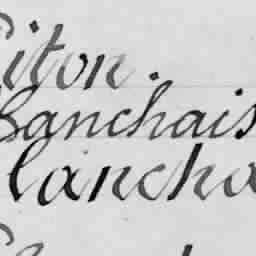 iton.
Sanchais
lancha